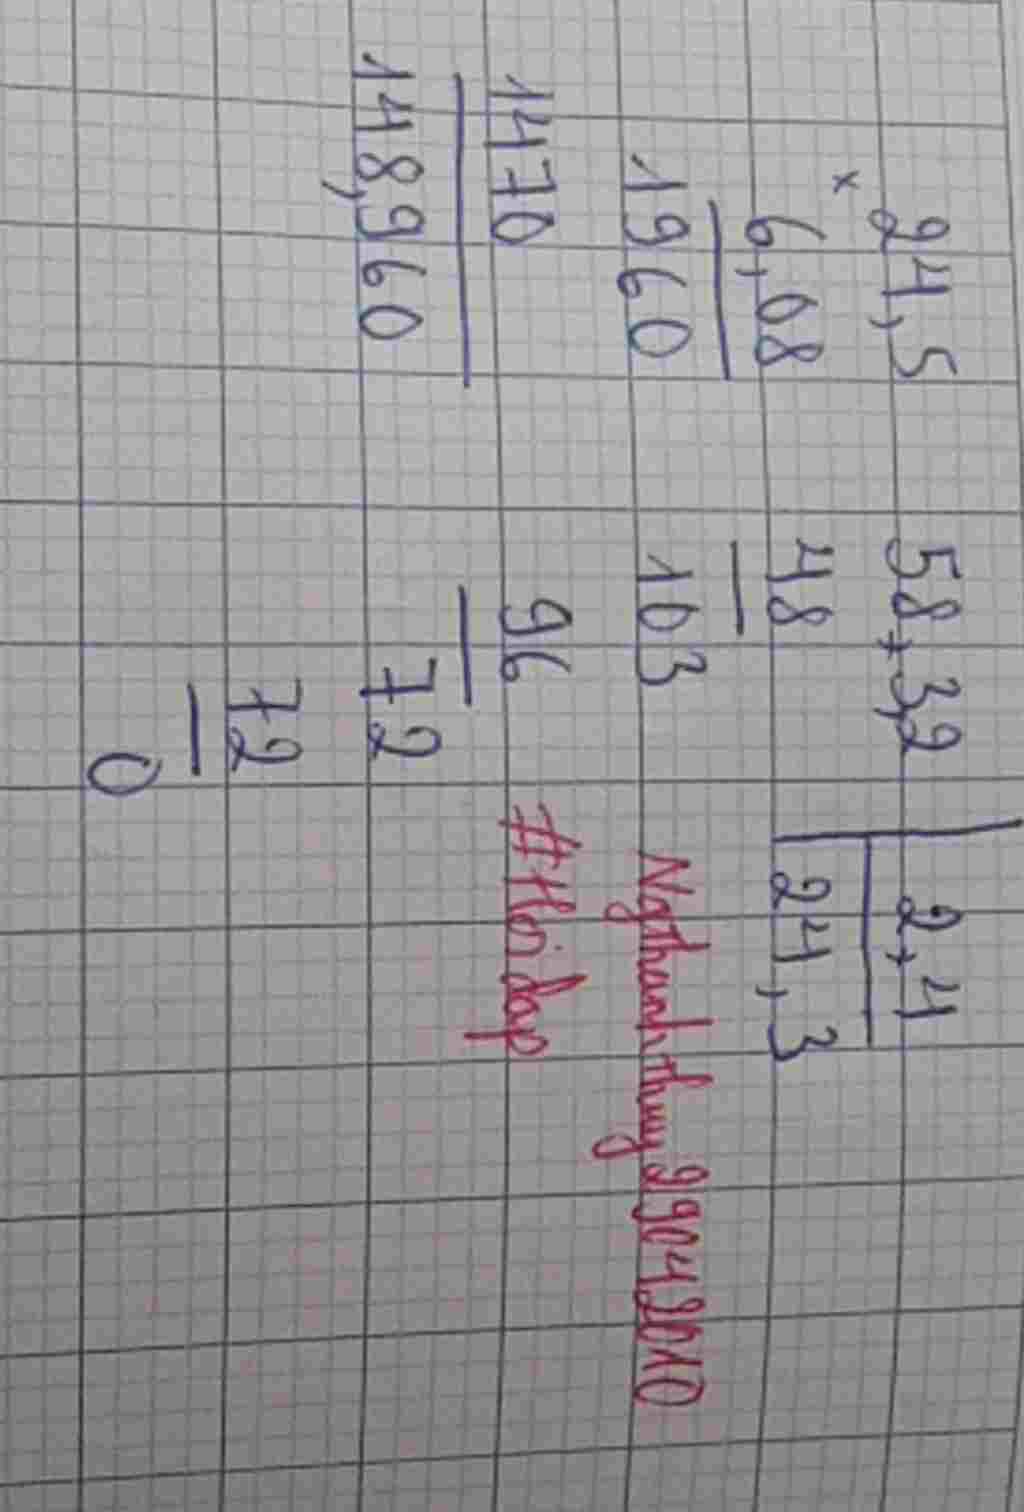 24,5
×
6,08
1960
1470
148,960
58,3,2
2,4
48
24,3
103
96
72
72
0
Ngthanhthuy29042010
#Hoidap